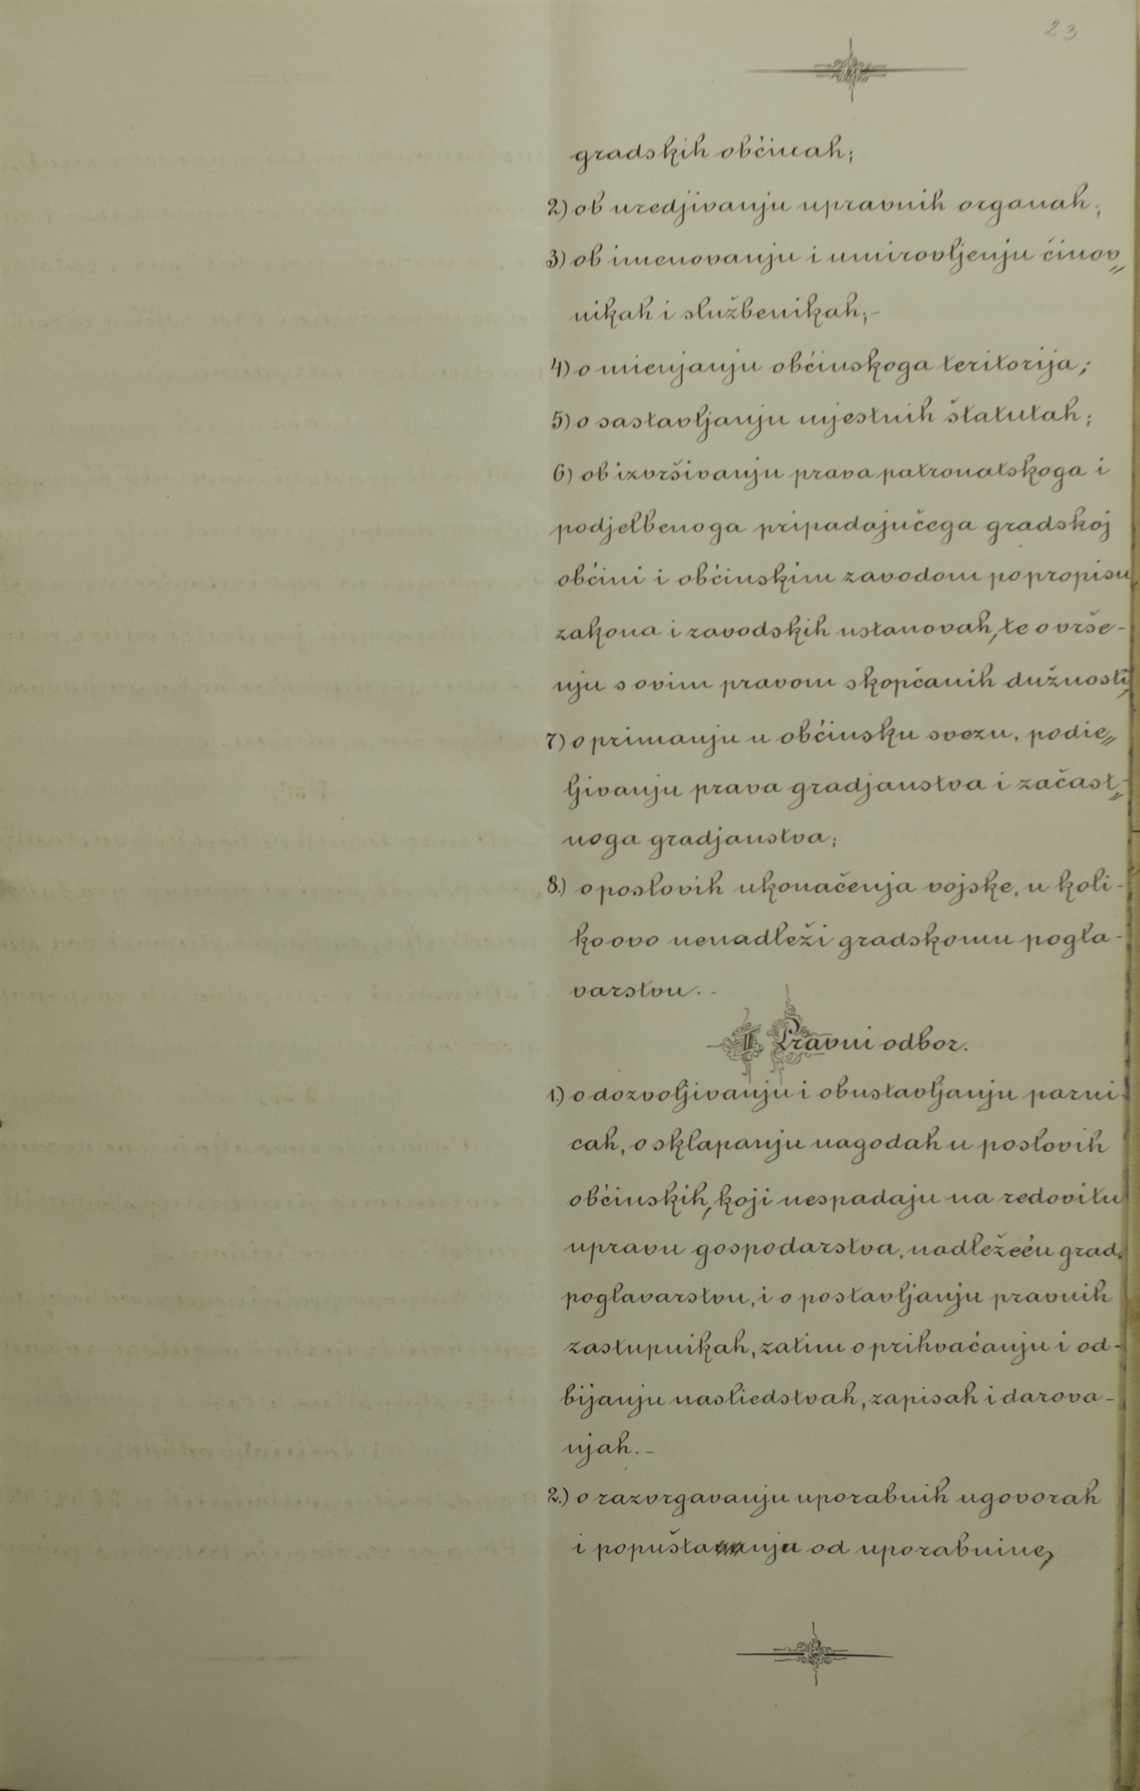 23
gradskih občinah;
2) ob uredjivanju upravnih organah;
3) ob imenovanju i umirovljenju činov„
nikah i službenikah;-
4) o mienjanju občinskoga teritorija;
5) o sastavljanju mjestnih štatutah;
6) ob izvršivanju prava patronatskoga i
podjelbenoga pripadajućega gradskoj
občini i občinskim zavodom po propisu
zakona i zavodskih ustanovah, te o vrše-
nju s ovim pravom skopčanih dužnosti;
7) o primanju u občinsku svezu, podie„
ljivanju prava gradjanstva i začast„
noga gradjanstva;
8.) o poslovih ukonačenja vojske, u koli-
ko ovo nenadleži gradskomu pogla-
varstvu.-
II. Pravni odbor.
1.) o dozvoljivanju i obustavljanju parni-
cah, o sklapanju nagodah u poslovih
občinskih, koji nespadaju na redovitu
upravu gospodarstva, nadležeću grad.
poglavarstvu, i o postavljanju pravnih
zastupnikah, zatim o prihvaćanju i od-
bijanju nasliedstvah, zapisah i darova-
njah.-
2.) o razvrgavanju uporabnih ugovorah
i popuštanju od uporabnine,